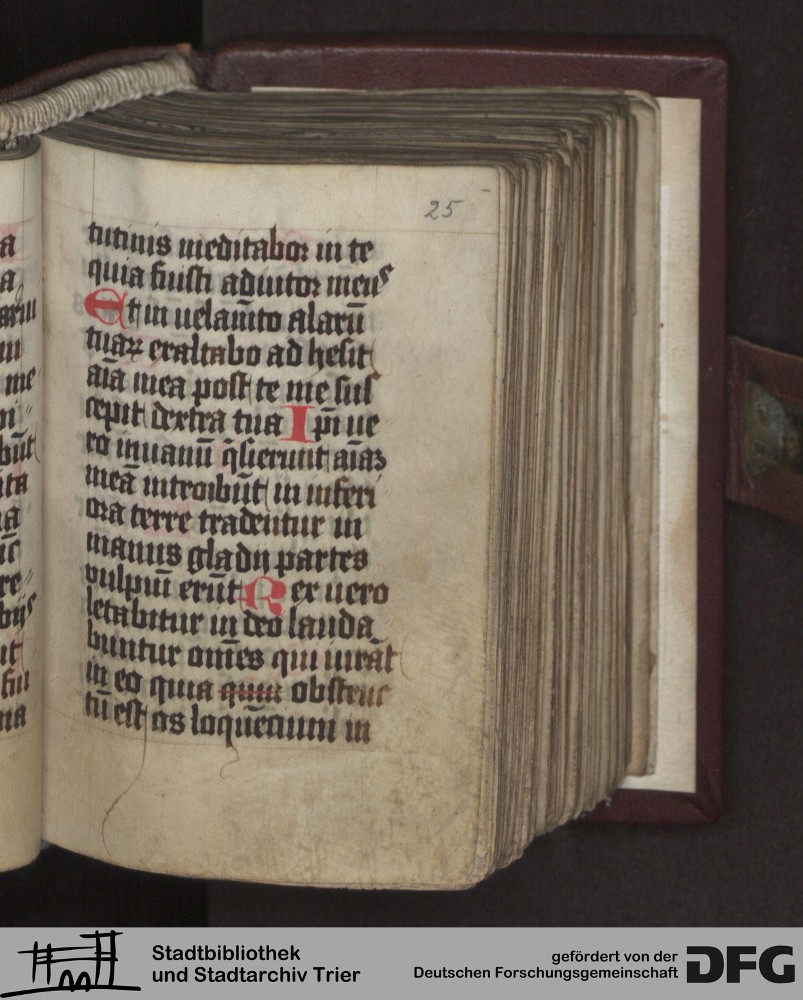 25
tutinis meditabor in te
quia fuisti adiutor meus
Et in uelam̄to alarū
tuaꝝ exaltabo adhesit
aīa mea post te me sus
cepit dextra tua Ip̄i ue
ro inuanū q̄sierunt aīaꝫ
meā introibūt in inferi
ora terre tradentur in
manus gladij partes
vulpiū erūt Rex uero
letabitur in deo lauda
buntur om̄es qui iurāt
in eo quia quia obstruc
tū est os loquēcium in
a
a
arū
me
būt
ita
re
bijs
ut
sui
na
Stadtbibliothek
und Stadtarchiv Trier
gefördert von der
Deutschen Forschungsgemeinschaft
DFG